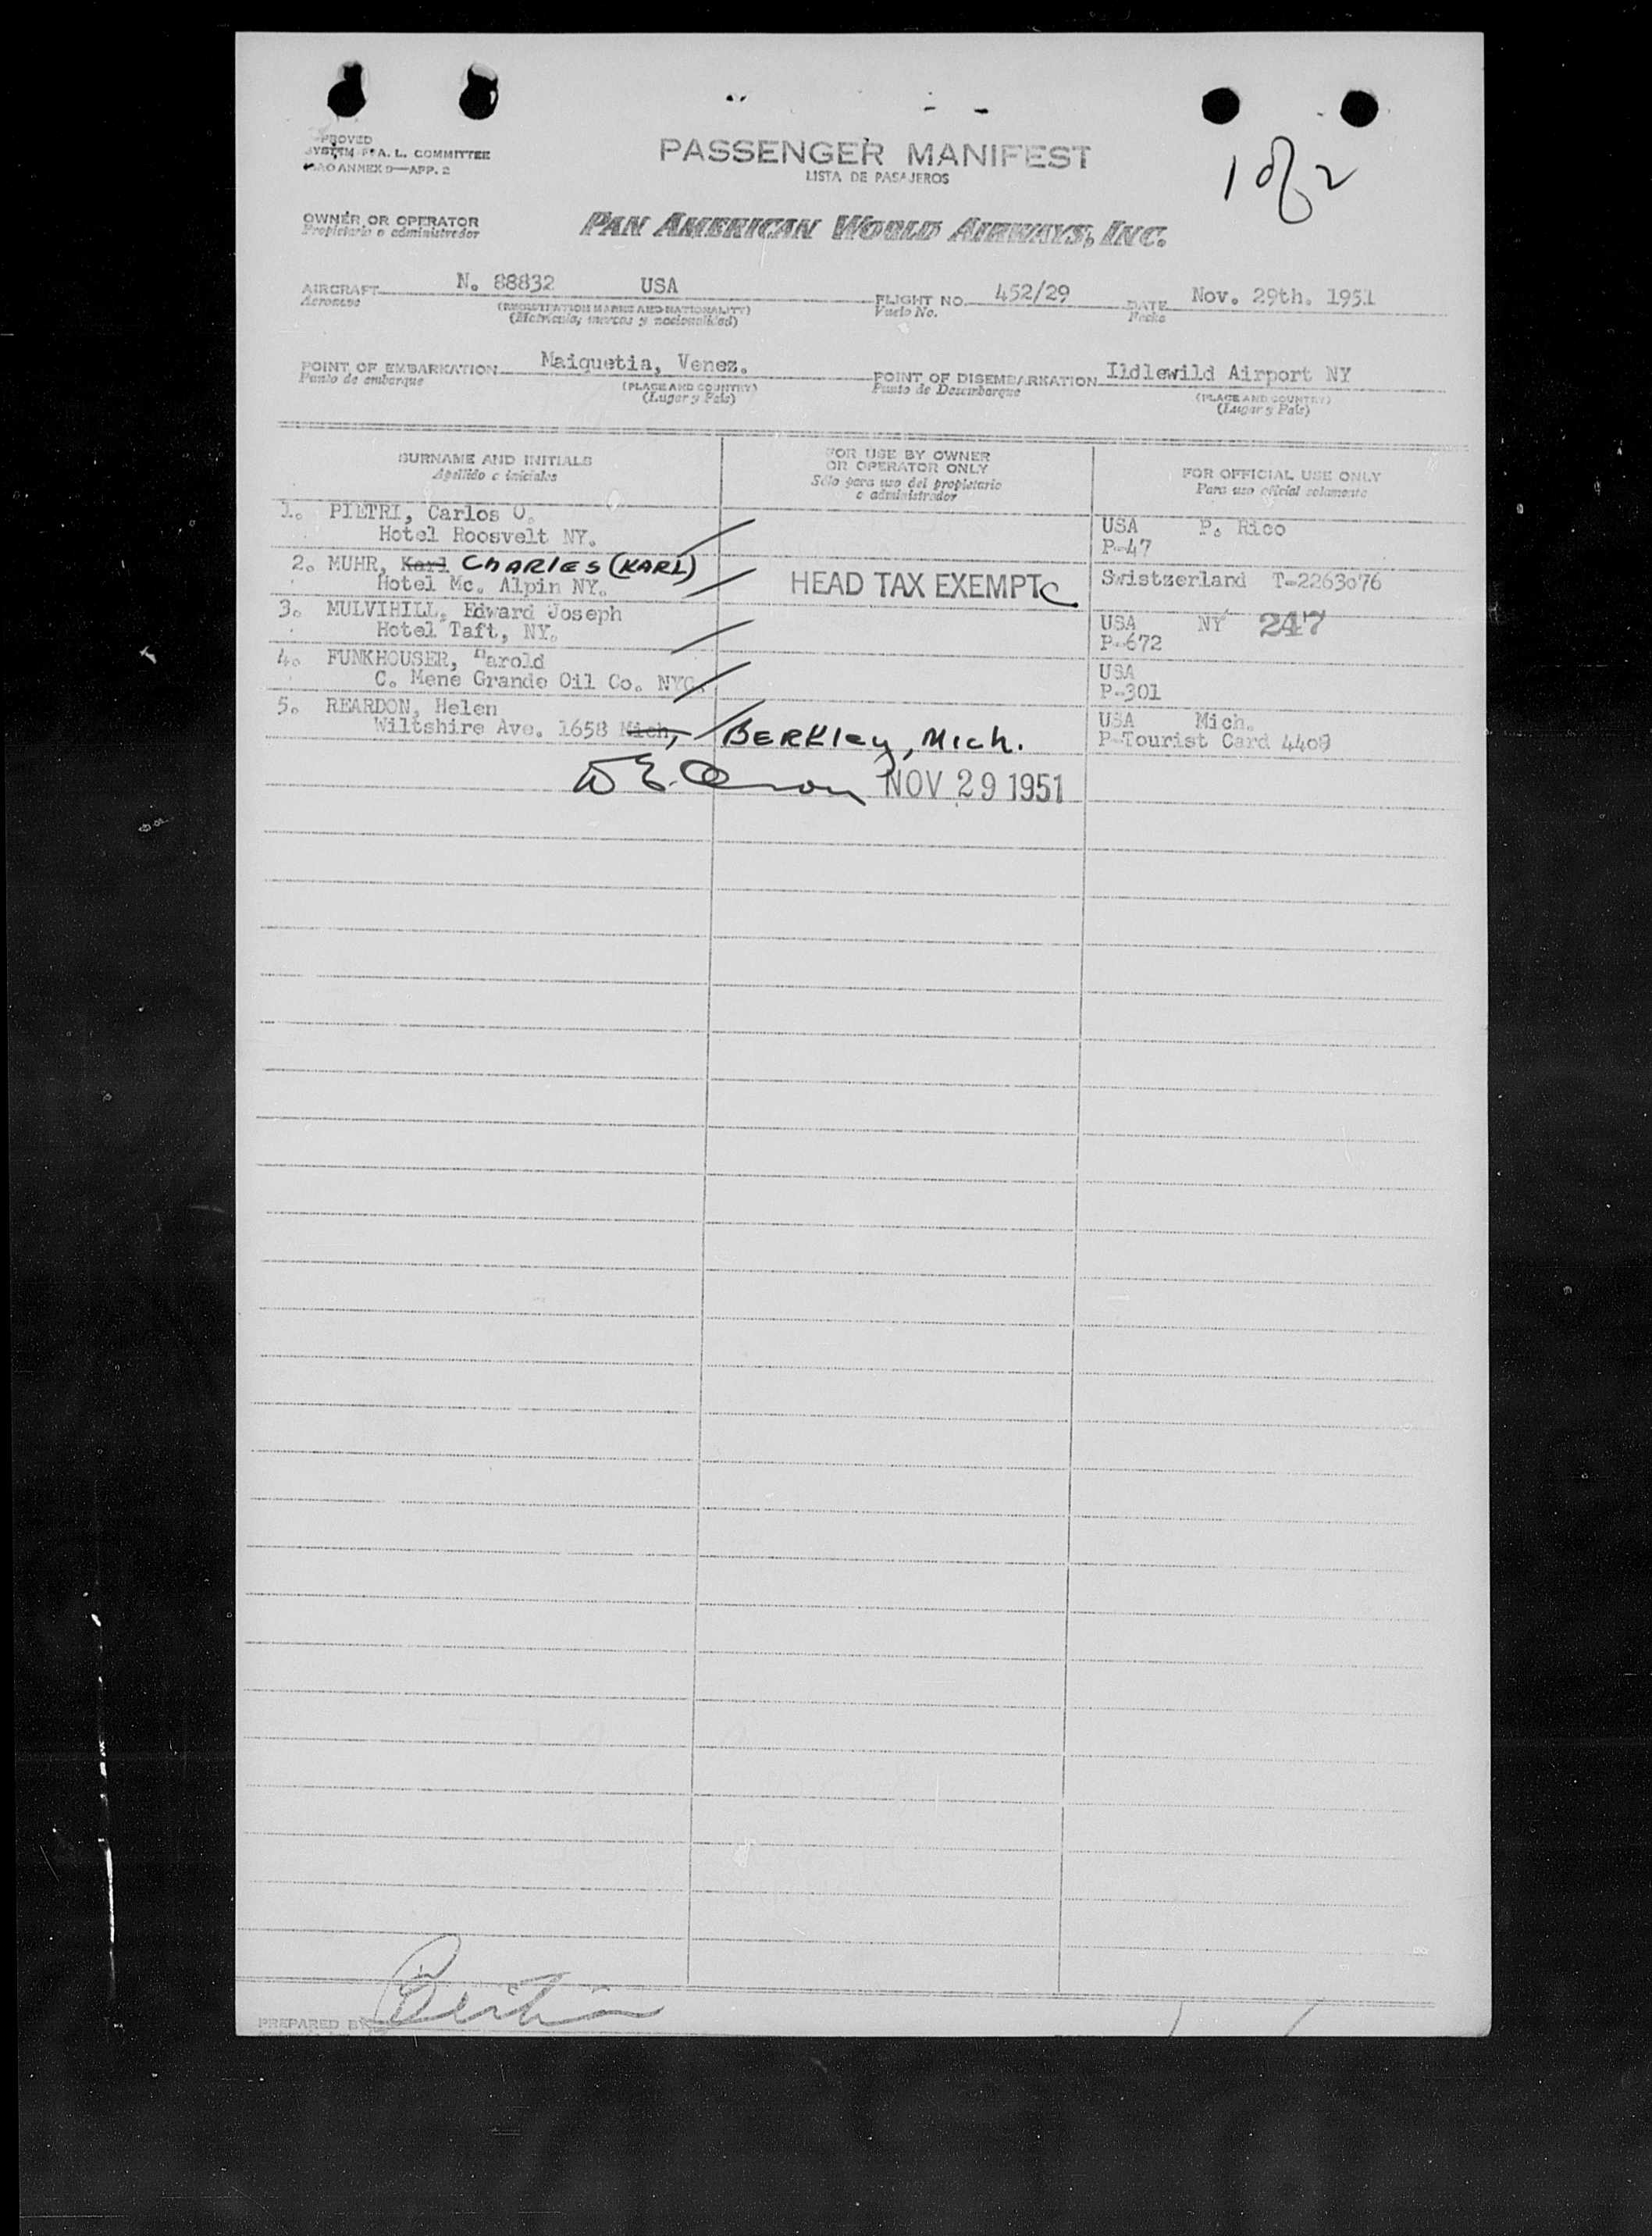 PROVED
SYSTEM F A. L. COMMITTEE
ICAO ANNEX 9—APP. 2
PASSENGER MANIFEST
LISTA DE PASAJEROS
1 of 2
OWNER OR OPERATOR
Propietario o administrador
PAN AMERICAN WORLD AIRWAYS, INC.
AIRCRAFT N. 88832 USA FLIGHT NO. 452/29 DATE Nov. 29th. 1951
Aeronave (REGISTRATION MARKS AND NATIONALITY) Vuelo No. Fecha
(Matrícula, marcas y nacionalidad)
POINT OF EMBARKATION Maiquetia, Venez. POINT OF DISEMBARKATION Ildlewild Airport NY
Punto de embarque (PLACE AND COUNTRY) Punto de Desembarque (PLACE AND COUNTRY)
(Lugar y País) (Lugar y País)
SURNAME AND INITIALS
Apellido e iniciales
FOR USE BY OWNER
OR OPERATOR ONLY
Sólo para uso del propietario
o administrador
FOR OFFICIAL USE ONLY
Para uso oficial solamente
1. PIETRI, Carlos O. USA P. Rico
Hotel Roosvelt NY. P-47
2. MUHR, Karl CHARLES (KARL)
Hotel Mc. Alpin NY. HEAD TAX EXEMPT C Swistzerland T-2263076
3. MULVIHILL, Edward Joseph USA NY 247
Hotel Taft, NY. P-672
4. FUNKHOUSER, Harold USA
C. Mene Grande Oil Co. NYC. P-301
5. REARDON, Helen USA Mich.
Wiltshire Ave. 1658 Mich, BERKley, Mich. P-Tourist Card 4409
NOV 29 1951
PREPARED BY